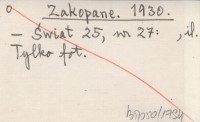 o Zakopane. 1930.
— Świat 25, nr 27: , il.
Tylko fot.